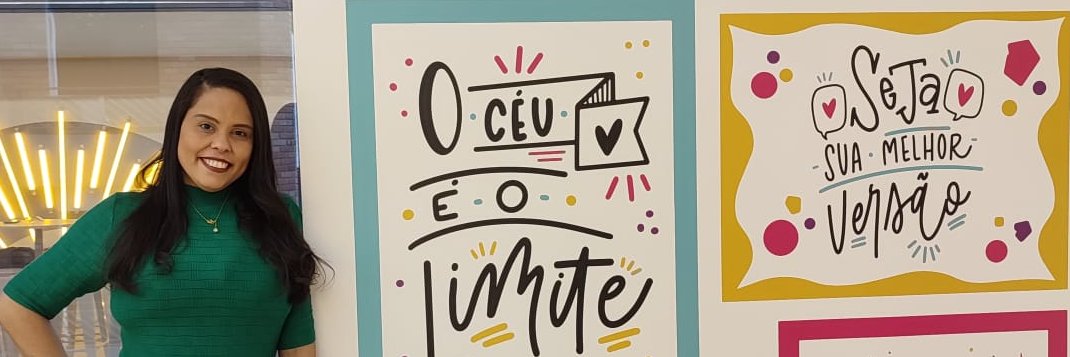 O
CÉU
É O
limite
Seja
SUA MELHOR
versão